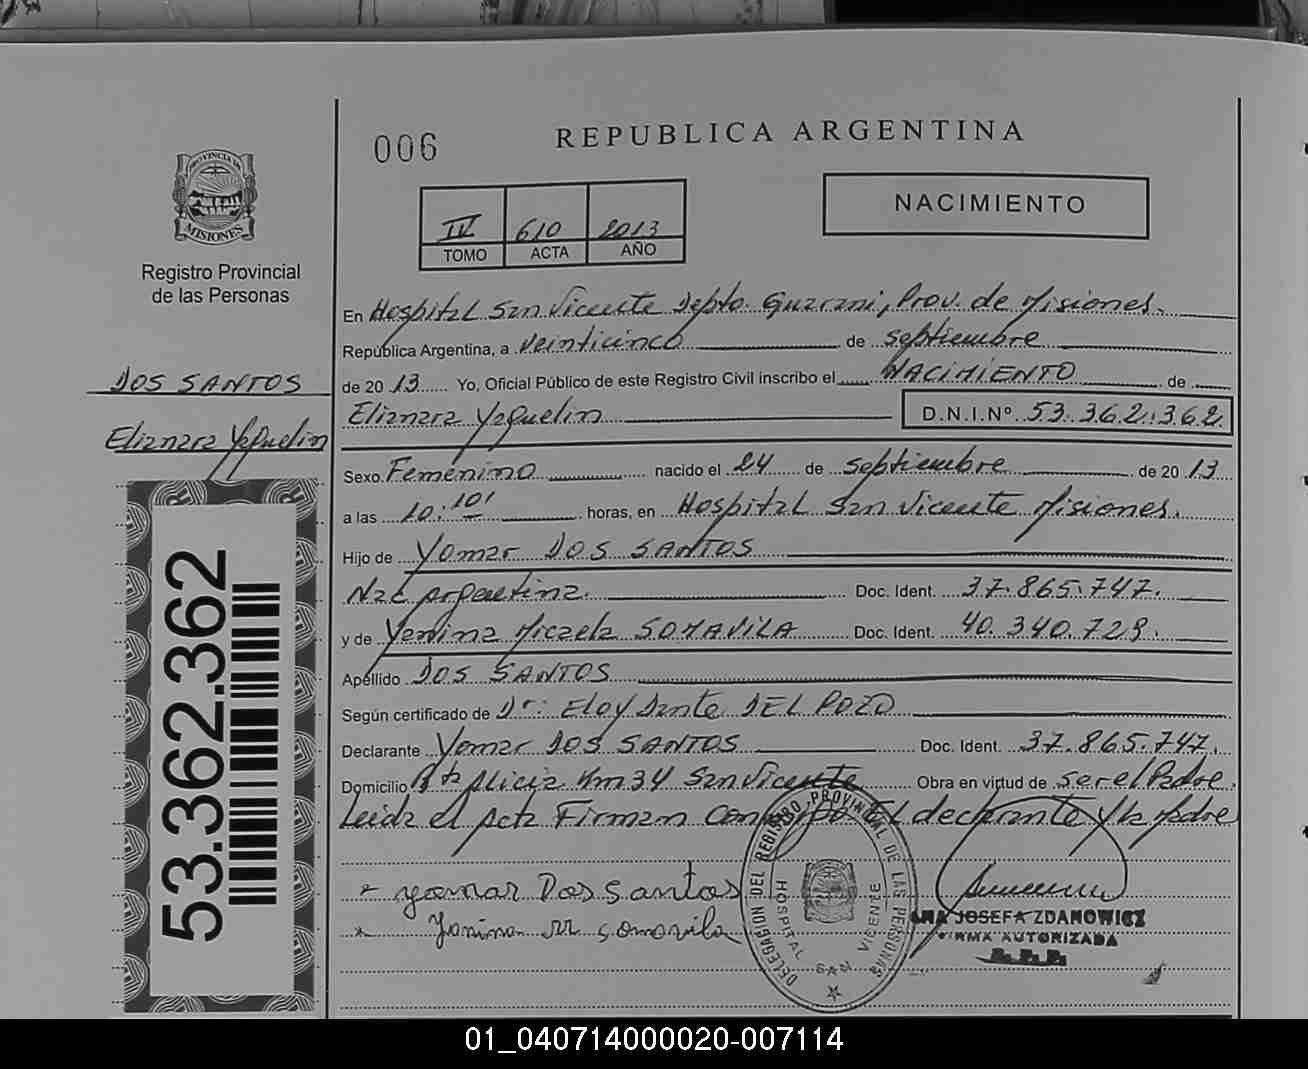 006
REPUBLICA ARGENTINA
PROVINCIA DE
MISIONES
Registro Provincial
de las Personas
IV 610 2013
TOMO ACTA AÑO
NACIMIENTO
DOS SANTOS
Elianara Yaquelin
53.362.362
En Hospital San Vicente Depto. Guarani, Prov. de Misiones.
República Argentina, a veinticinco de septiembre
de 2013 Yo, Oficial Público de este Registro Civil inscribo el NACIMIENTO de
Elianara Yaquelin D.N.I.Nº 53.362.362
Sexo Femenino nacido el 24 de septiembre de 2013
a las 10:10' horas, en Hospital San Vicente Misiones.
Hijo de Yomar DOS SANTOS
Nac argentina. Doc. Ident. 37.865.747.
y de Yanina Micaela SOMAVILA Doc. Ident. 40.340.729.
Apellido DOS SANTOS
Según certificado de Dr: Eloy Dante DEL POZO
Declarante Yomar DOS SANTOS Doc. Ident. 37.865.747.
Domicilio Pto Alicia Km34 San Vicente Obra en virtud de ser el Padre.
Leida el Acta Firman El declarante y la Madre
* yomar Dos santos
* Yanina M somavila
DELEGACION DEL REGISTRO PROVINCIAL DE LAS PERSONAS
HOSPITAL SAN VICENTE
ANA JOSEFA ZDANOWICZ
FIRMA AUTORIZADA
R.P.P.
01_040714000020-007114